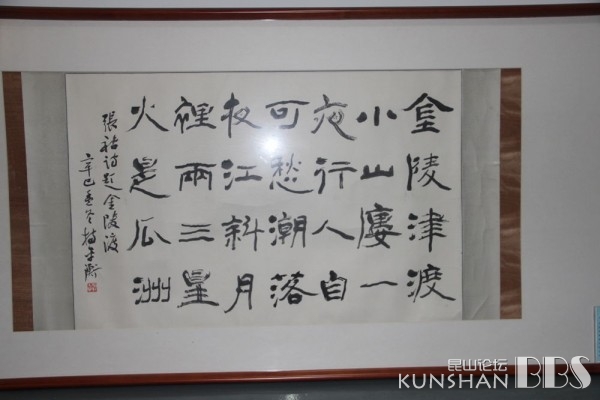 金陵津渡
小山廔一
宿行人自
可愁潮落
夜江斜月
裡兩三星
火是瓜洲
張祜詩題金陵渡
辛巳
昆山论坛
KUNSHAN BBS